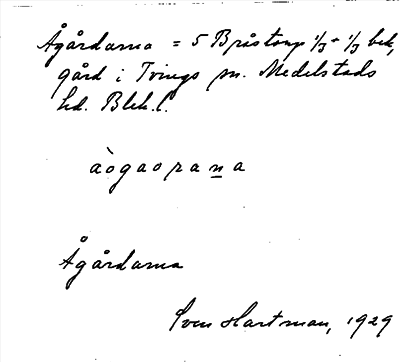 Ågårdarna = 5 Bråstorp 1/3 + 1/3 bek,
gård i Tvings sn. Medelstads
hd. Blek.l.
àogaorana
Ågårdarna
Sven Hartman, 1929